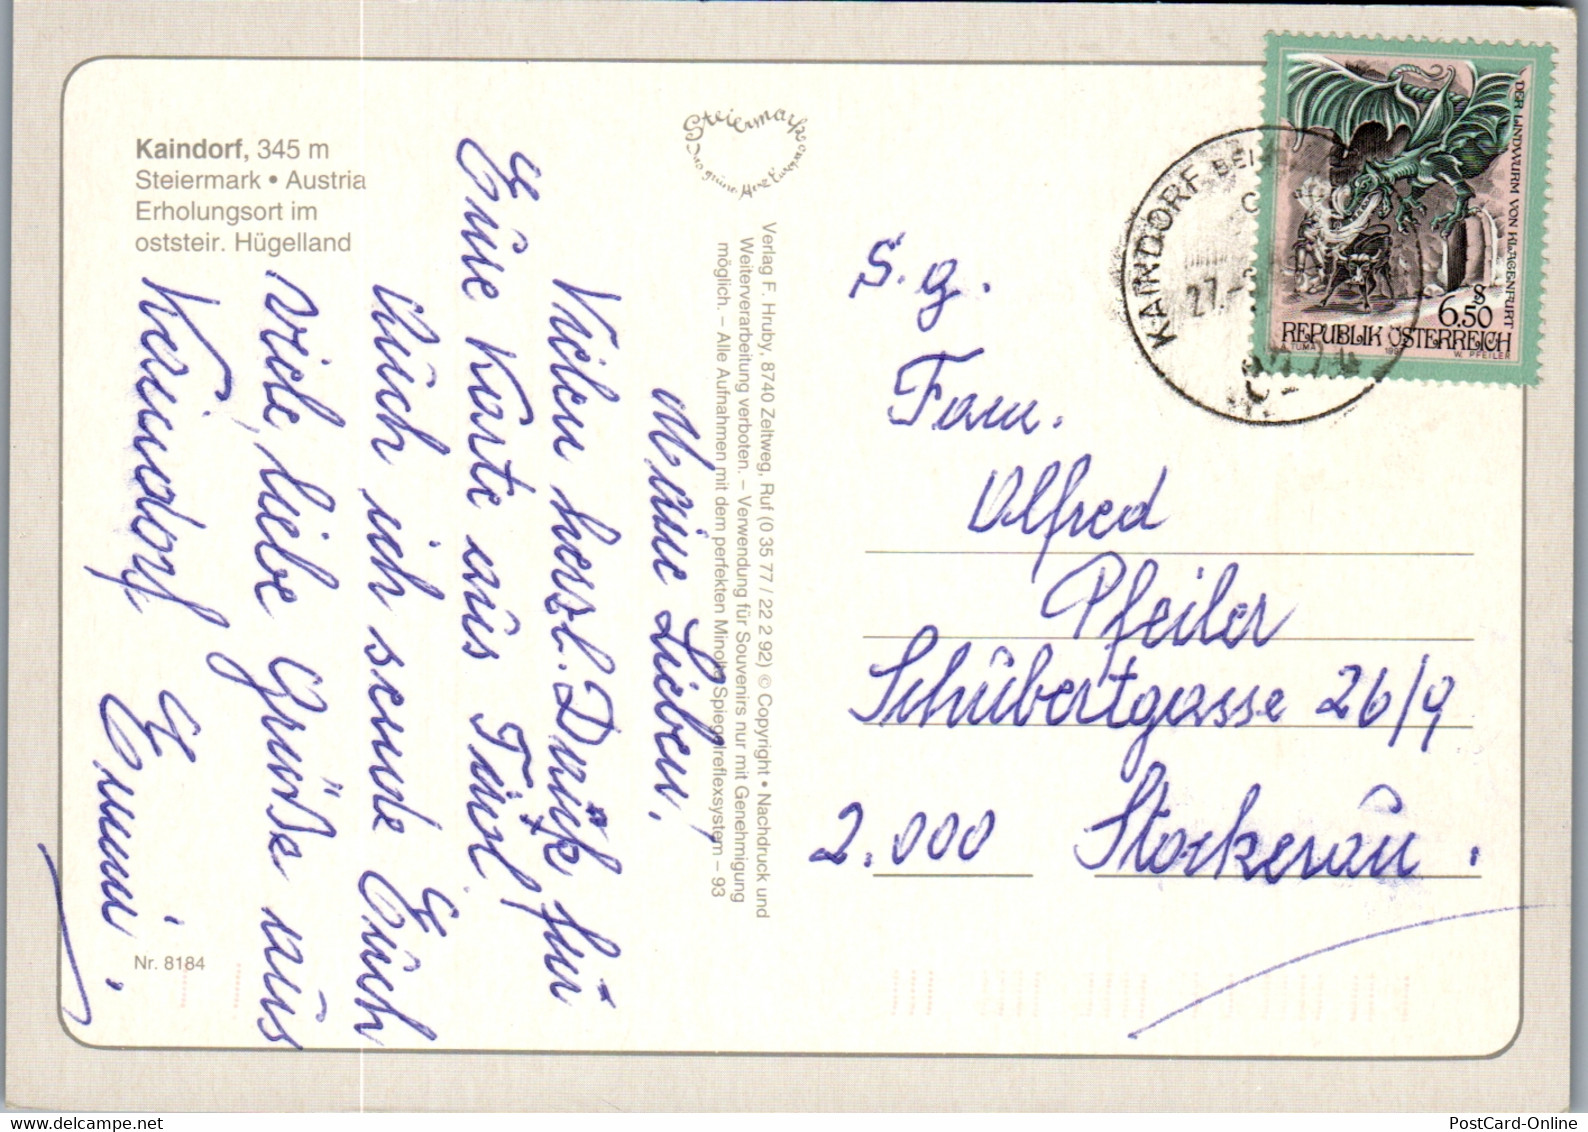 Kaindorf, 345 m
Steiermark • Austria
Erholungsort im
oststeir. Hügelland
Steiermark
Das grüne Herz Europas
Meine Lieben,
Vielen herzl. Dank für
Eure Karte aus Tirol.
Auch ich sende Euch
viele, liebe Grüße aus
Kaindorf Emmi.
Nr. 8184
Verlag F. Hruby, 8740 Zeltweg, Ruf (0 35 77 / 22 2 92) © Copyright • Nachdruck und
Weiterverarbeitung verboten. – Verwendung für Souvenirs nur mit Genehmigung
möglich. – Alle Aufnahmen mit dem perfekten Minolta Spiegelreflexsystem – 93
KAINDORF BEI
27.
DER LINDWURM VON KLAGENFURT
S 6.50
REPUBLIK ÖSTERREICH
TUMA W. PFEILER
S. g.
Fam.
Alfred
Pfeiler
Schubertgasse 26/9
2.000 Stockerau.
PostCard-Online